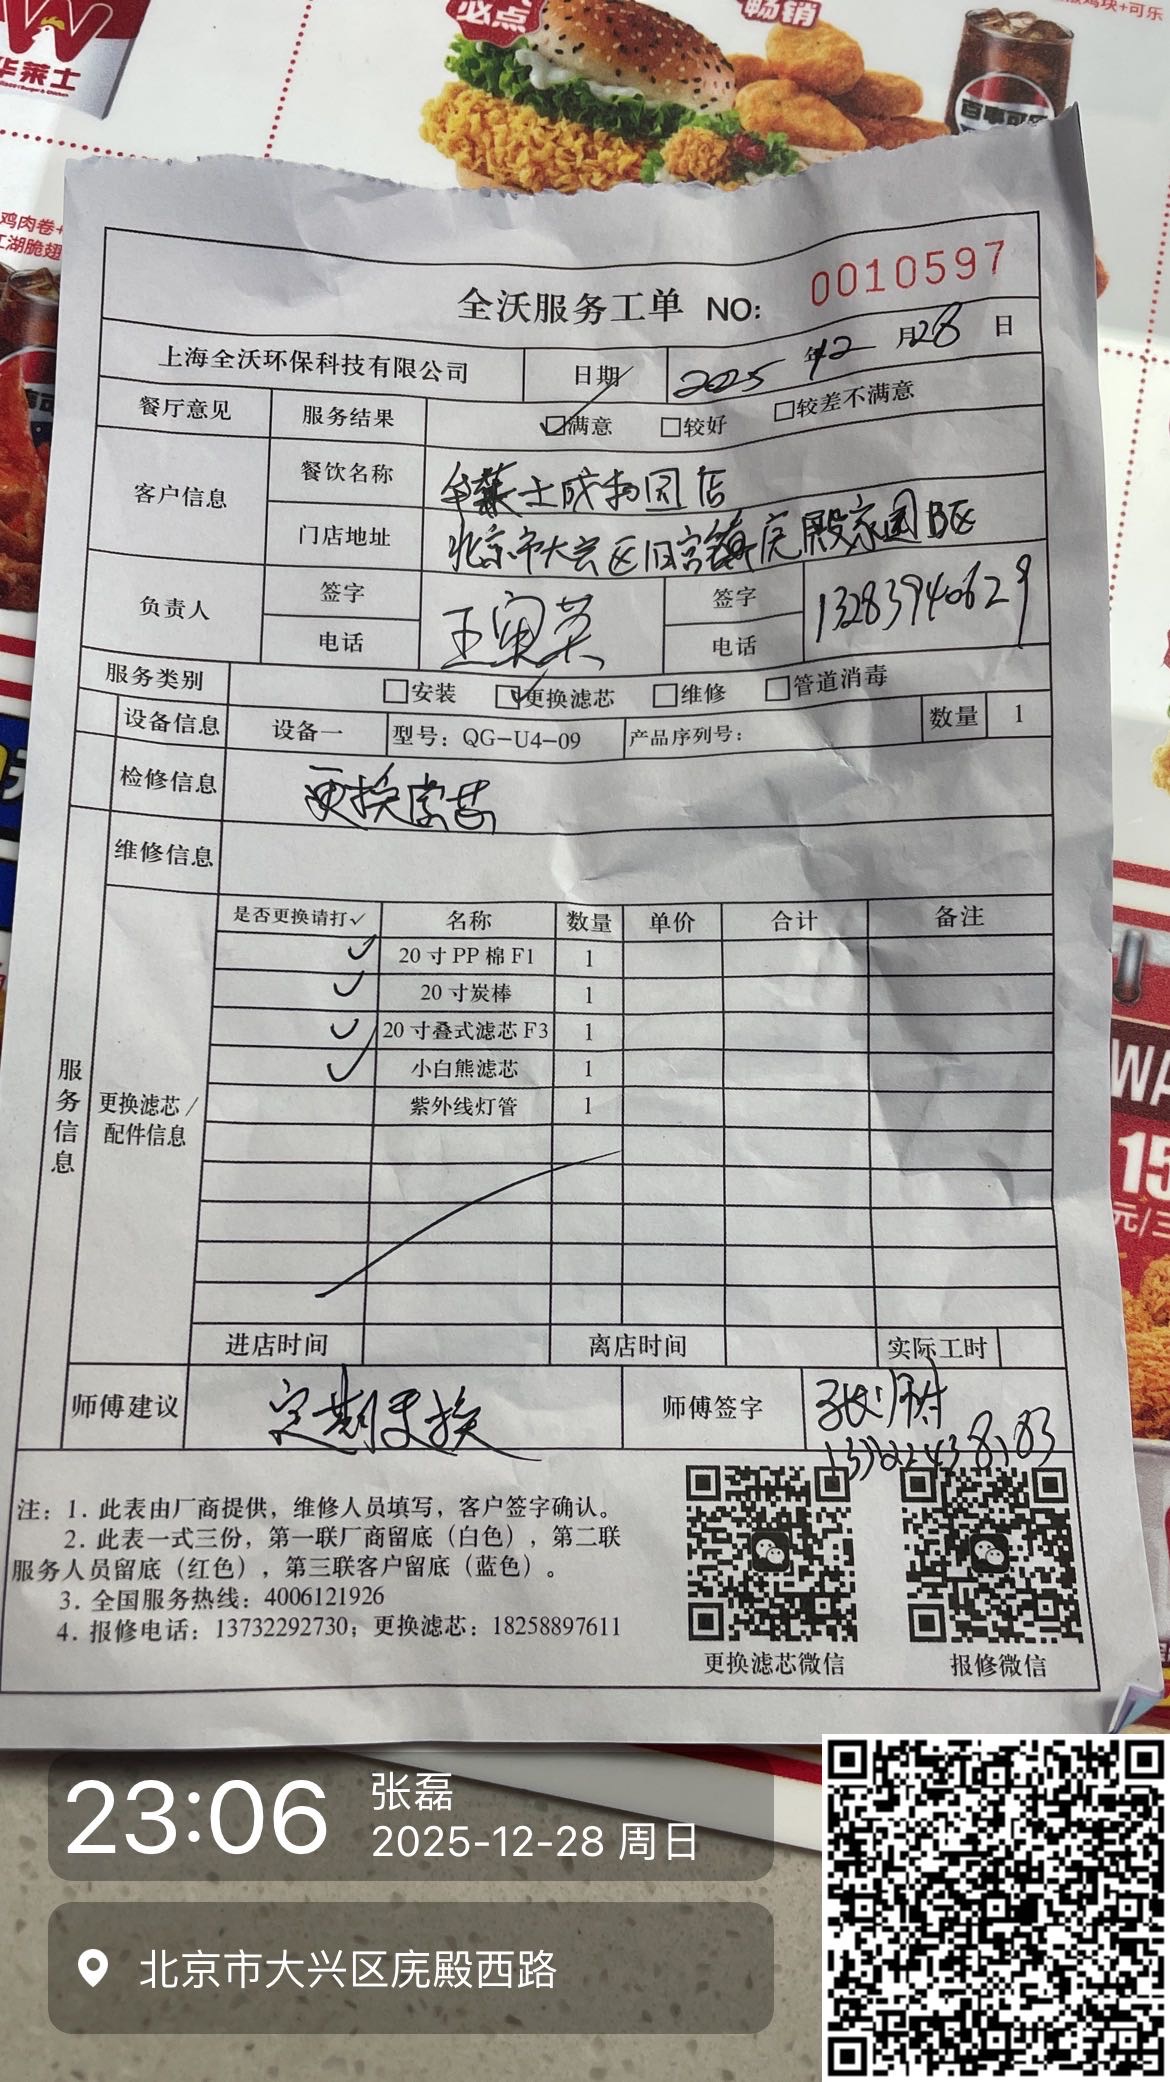 必点
畅销
鸡块+可乐
华莱士
鸡肉卷+
江湖脆翅
百事可乐
全沃服务工单 NO: 0010597
上海全沃环保科技有限公司 日期 2025年12月28日
餐厅意见 服务结果 ☑满意 □较好 □较差不满意
客户信息 餐饮名称 华莱士成和园店
门店地址 北京市大兴区旧宫镇庑殿家园B区
负责人 签字 签字
电话 电话 13283940629
服务类别 □安装 ☑更换滤芯 □维修 □管道消毒
设备信息 设备一 型号：QG-U4-09 产品序列号： 数量 1
检修信息 更换滤芯
维修信息
是否更换请打✓ 名称 数量 单价 合计 备注
✓ 20寸PP棉F1 1
✓ 20寸炭棒 1
✓ 20寸叠式滤芯F3 1
✓ 小白熊滤芯 1
紫外线灯管 1
服务信息
更换滤芯/
配件信息
进店时间 离店时间 实际工时
师傅建议 定期更换 师傅签字
注：1. 此表由厂商提供，维修人员填写，客户签字确认。
2. 此表一式三份，第一联厂商留底（白色），第二联
服务人员留底（红色），第三联客户留底（蓝色）。
3. 全国服务热线：4006121926
4. 报修电话：13732292730；更换滤芯：18258897611
更换滤芯微信 报修微信
WA
15
元/三
23:06 张磊
2025-12-28 周日
北京市大兴区庑殿西路